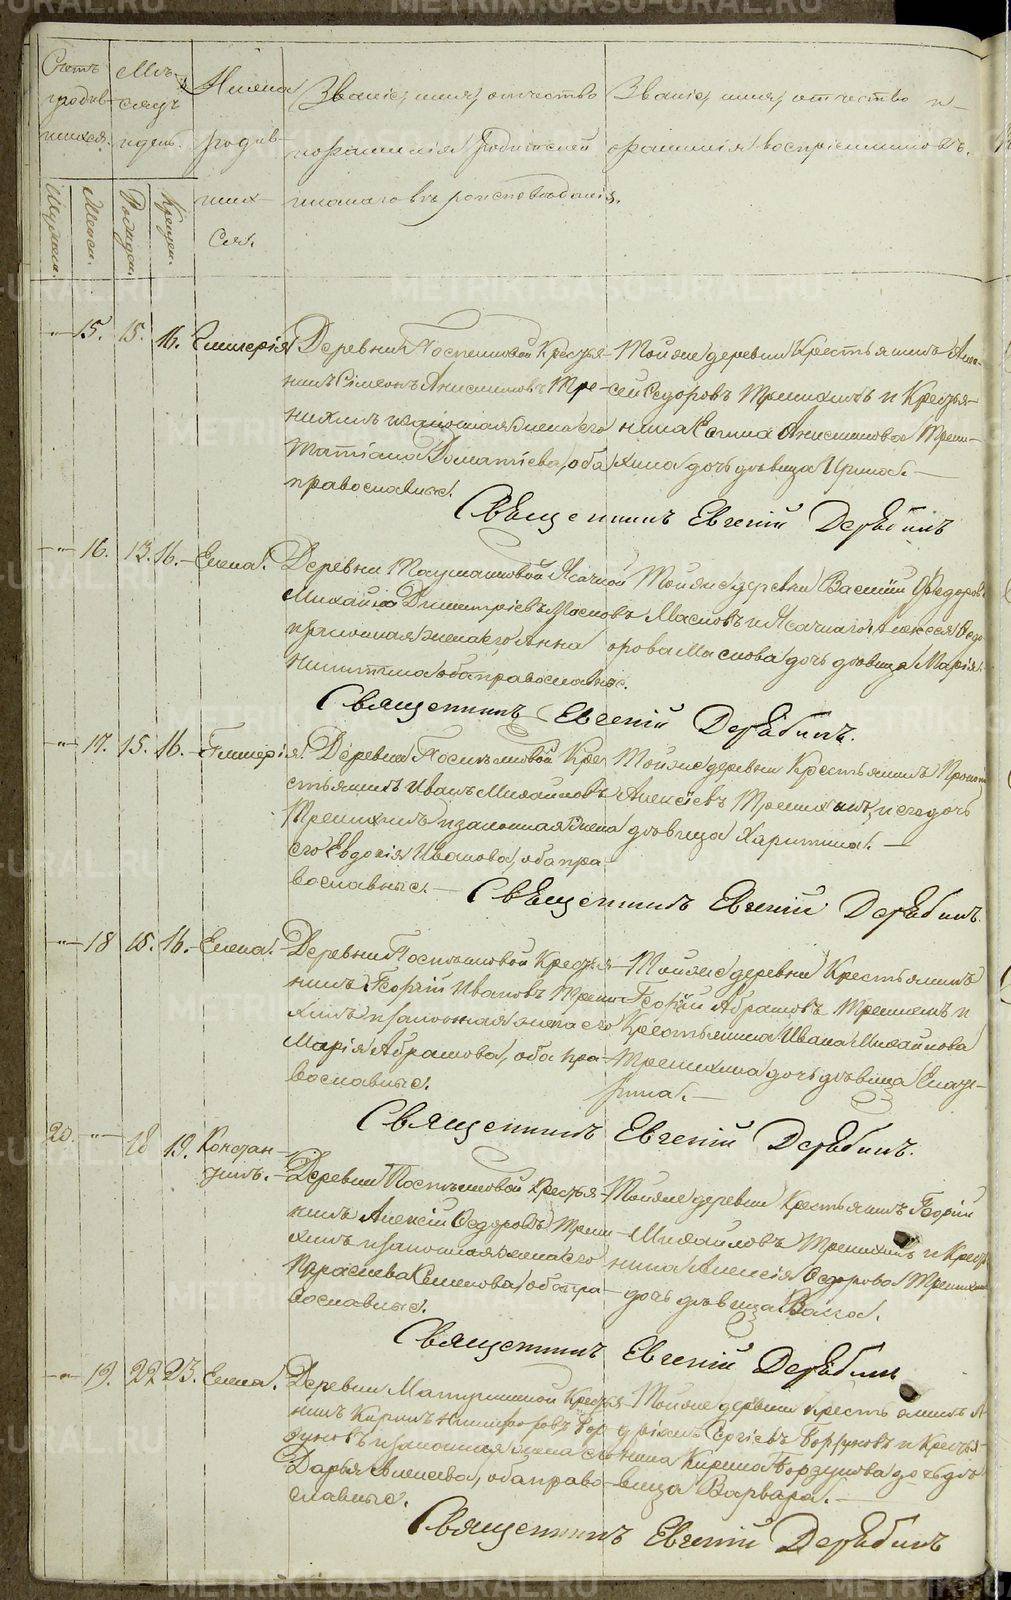 Счетъ родив-шихся.
Мѣ-сяцъ и день.
Имена родив-шихся.
Званіе, имя, отчество и фамилія родителей
и какого вѣроисповѣданія.
Званіе, имя, отчество и фамилія воспріемниковъ.
Мужеск.
Женск.
Рожден.
Крещен.
15. 15. 16. Гликерія
Деревни Крестья-
нинъ Симеонъ Анисимовъ Тре-
нихинъ и законная жена его
Татіана оба
православные.
Тойже деревни Крестьянинъ Алек-
сей Федоровъ Тренихинъ и Крестья-
нина Анисимова Трени-
хина дочь дѣвица Ирина.
Священникъ Евгеній Дерябинъ
16. 13. 16. Елена.
Деревни Ясачной
Михаилъ Димитріевъ Масловъ
и законная жена его Анна
Никитина оба православные.
Тойже деревни Василій Федоровъ
Масловъ и Ясачнаго Алексея Федо-
рова Маслова дочь дѣвица Марія.
Священникъ Евгеній Дерябинъ.
17. 15. 16. Гликерія.
Деревни Кре-
стьянинъ Иванъ Михайловъ
Тренихинъ и законная жена
его Евдокія Иванова, оба пра-
вославные.
Тойже деревни Крестьянинъ
Алексіевъ Тренихинъ и его дочь
дѣвица Харитина.
Священникъ Евгеній Дерябинъ.
18 15. 16. Елена.
Деревни Крестья-
нинъ Георгій Ивановъ Трени-
хинъ и законная жена его
Марія Абрамова, оба пра-
вославные.
Тойже деревни Крестьянинъ
Георгій Абрамовъ Тренихинъ и
Крестьянина Ивана Михайлова
Тренихина дочь дѣвица Екате-
рина.
Священникъ Евгеній Дерябинъ.
20. 18 19. Констан-
тинъ.
Деревни Крестья-
нинъ Алексій Федоровъ Трени-
хинъ и законная жена его
Параскева Семенова, оба пра-
вославные.
Тойже деревни Крестьянинъ Георгій
Михайловъ Тренихинъ и Кресть-
нина Алексія Федорова Тренихина
дочь дѣвица Васса.
Священникъ Евгеній Дерябинъ
19. 22 23. Елена.
Деревни Крестья-
нинъ Кирилъ Никифоровъ Бор-
зуновъ и законная жена его
Дарья Алексева, оба право-
славные.
Тойже деревни Крестьянинъ
Сергіевъ Борзуновъ и Крестья-
нина Кирила Борзунова дочь дѣ-
вица Варвара.
Священникъ Евгеній Дерябинъ
METRIKI.GASO-URAL.RU